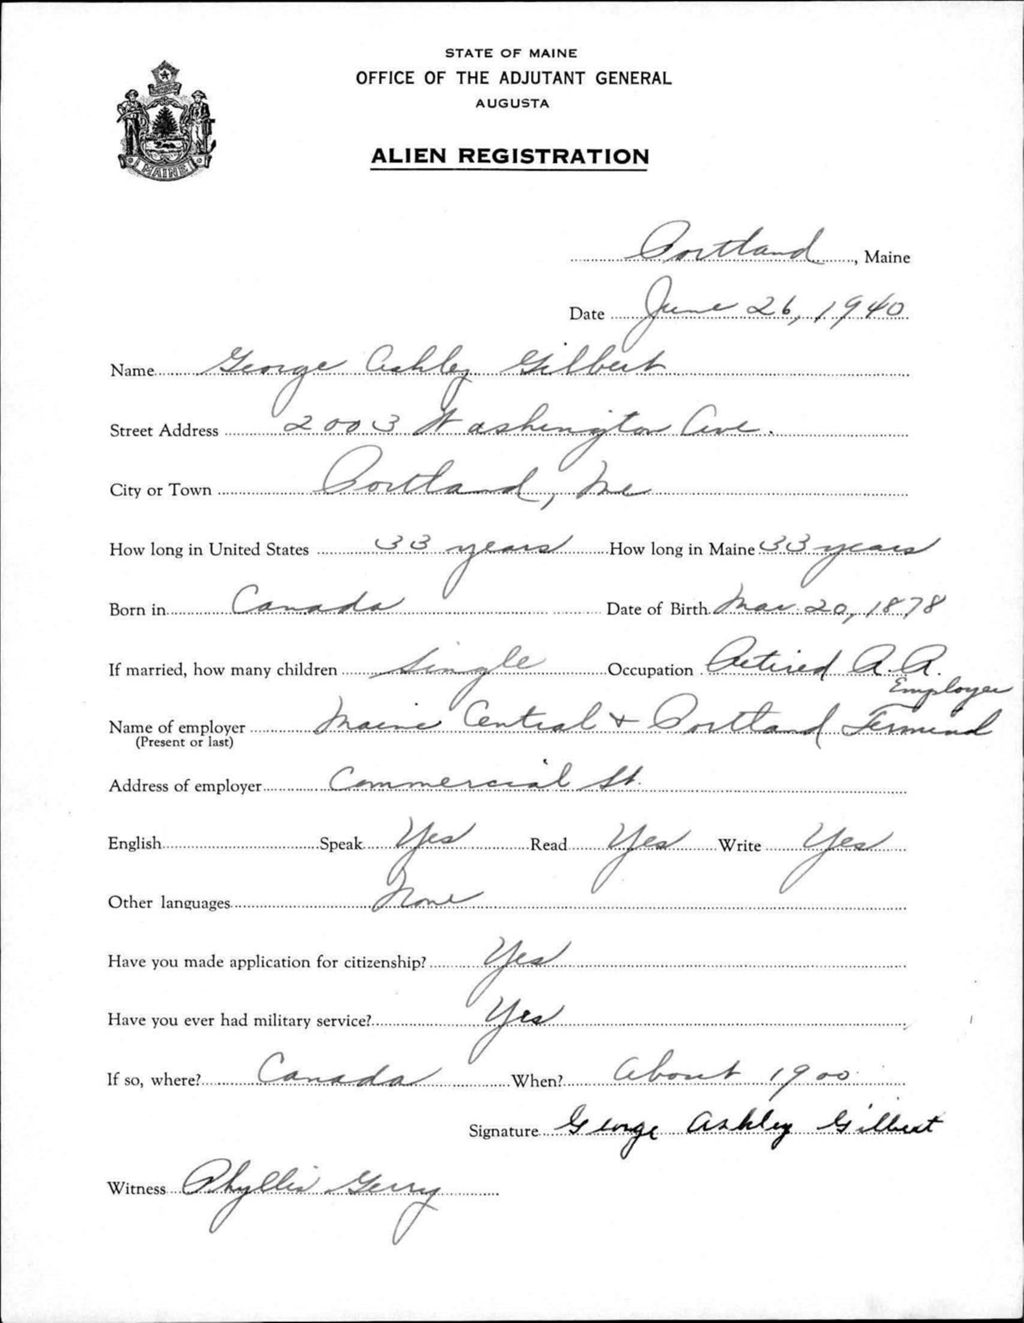 STATE OF MAINE
OFFICE OF THE ADJUTANT GENERAL
AUGUSTA
ALIEN REGISTRATION
MAINE
Portland, Maine
Date June 26, 1940
Name George Ashley Gilbert
Street Address 2003 Washington Ave.
City or Town Portland, Me
How long in United States 33 years How long in Maine 33 years
Born in Canada Date of Birth Mar 20, 1878
If married, how many children Single Occupation Retired R.R.
Employee
Name of employer Maine Central + Portland Terminal
(Present or last)
Address of employer Commercial St.
English Speak Yes Read Yes Write Yes
Other languages None
Have you made application for citizenship? Yes
Have you ever had military service? Yes
If so, where? Canada When? About 1900
Signature George Ashley Gilbert
Witness Phyllis Gerry